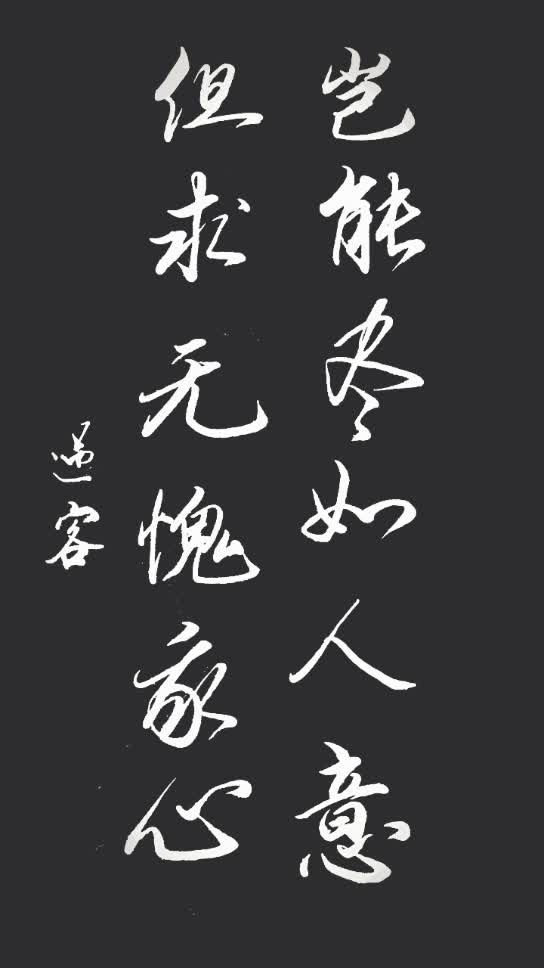 岂能尽如人意
但求无愧我心
過客